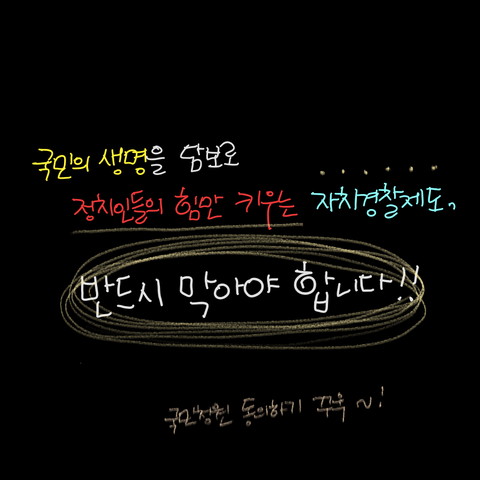 국민의 생명을 담보로
정치인들의 힘만 키우는 자치경찰제도,
반드시 막아야 합니다!!
국민청원 동의하기 꾸욱~!